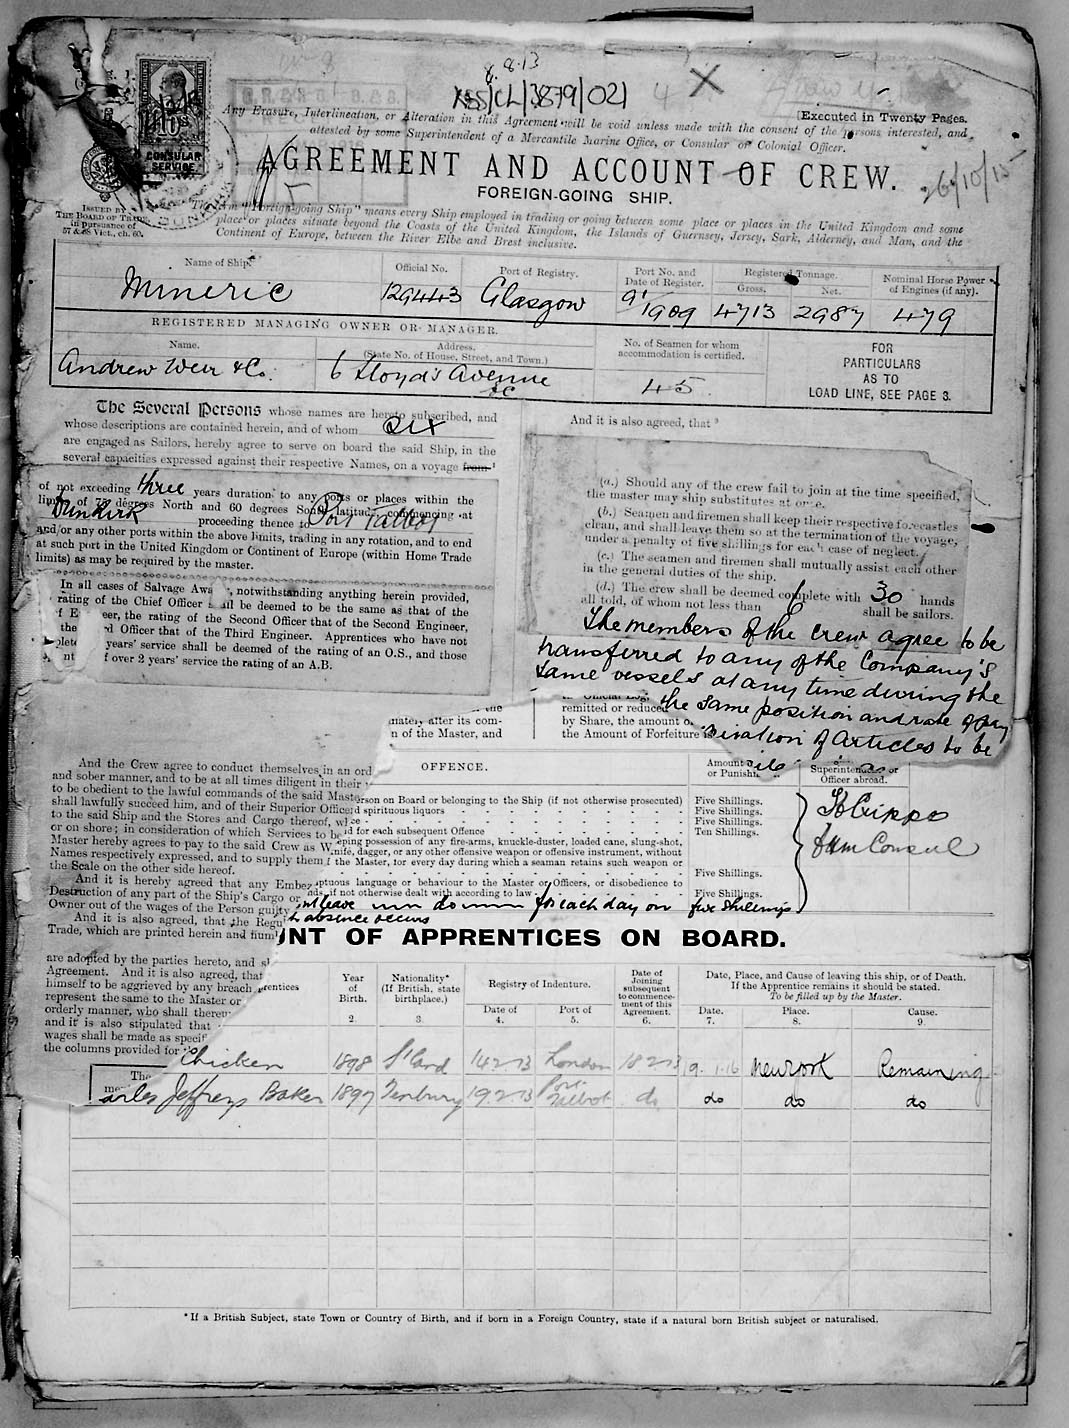 8.8.13
1SS/CL/3879/021
4 X
(Executed in Twenty Pages.
Any Erasure, Interlineation, or Alteration in this Agreement will be void unless made with the consent of the persons interested, and
attested by some Superintendent of a Mercantile Marine Office, or Consular or Colonial Officer.
CONSULAR
SERVICE
AGREEMENT AND ACCOUNT OF CREW.
26/10/15
FOREIGN-GOING SHIP.
ISSUED BY
THE BOARD OF TRADE
in pursuance of
57 & 58 Vict., ch. 60.
"Foreign-going Ship" means every Ship employed in trading or going between some place or places in the United Kingdom and some
place or places situate beyond the Coasts of the United Kingdom, the Islands of Guernsey, Jersey, Sark, Alderney, and Man, and the
Continent of Europe, between the River Elbe and Brest inclusive.
Name of Ship.
Official No.
Port of Registry.
Port No. and
Date of Register.
Registered Tonnage.
Gross. Net.
Nominal Horse Power
of Engines (if any).
Mineric 129443 Glasgow 9/1909 4713 2987 479
REGISTERED MANAGING OWNER OR MANAGER.
Name.
Address.
(State No. of House, Street, and Town.)
No. of Seamen for whom
accommodation is certified.
FOR
PARTICULARS
AS TO
LOAD LINE, SEE PAGE 3.
Andrew Weir & Co. 6 Lloyd's Avenue
EC
45
The Several Persons whose names are hereto subscribed, and
whose descriptions are contained herein, and of whom six
are engaged as Sailors, hereby agree to serve on board the said Ship, in the
several capacities expressed against their respective Names, on a voyage from 1
of not exceeding three years duration to any ports or places within the
limits of 75 degrees North and 60 degrees South latitude, commencing at
Dunkirk proceeding thence to Port Talbot
and/or any other ports within the above limits, trading in any rotation, and to end
at such port in the United Kingdom or Continent of Europe (within Home Trade
limits) as may be required by the master.
In all cases of Salvage Awa , notwithstanding anything herein provided,
rating of the Chief Officer all be deemed to be the same as that of the
f E eer, the rating of the Second Officer that of the Second Engineer,
the d Officer that of the Third Engineer. Apprentices who have not
plete years' service shall be deemed of the rating of an O.S., and those
f over 2 years' service the rating of an A.B.
And it is also agreed, that 3
(a.) Should any of the crew fail to join at the time specified,
the master may ship substitutes at once.
(b.) Seamen and firemen shall keep their respective forecastles
clean, and shall leave them so at the termination of the voyage,
under a penalty of five shillings for each case of neglect.
(c.) The seamen and firemen shall mutually assist each other
in the general duties of the ship.
(d.) The crew shall be deemed complete with 30 hands
all told, of whom not less than 6 shall be sailors.
The members of the crew agree to be
transferred to any of the Company's
same vessels at any time during the
the same position and rate of pay
iration of Articles to be
remitted or reduced
by Share, the amount o
the Amount of Forfeiture
the
mately after its com-
n of the Master, and
And the Crew agree to conduct themselves in an ord
and sober manner, and to be at all times diligent in their
to be obedient to the lawful commands of the said Mast
shall lawfully succeed him, and of their Superior Office
to the said Ship and the Stores and Cargo thereof, w
or on shore; in consideration of which Services to be
Master hereby agrees to pay to the said Crew as W
Names respectively expressed, and to supply them
the Scale on the other side hereof.
And it is hereby agreed that any Embe
Destruction of any part of the Ship's Cargo or
Owner out of the wages of the Person guilty
And it is also agreed, that the Regu
Trade, which are printed herein and num
are adopted by the parties hereto, and s
Agreement. And it is also agreed, that
himself to be aggrieved by any breach
represent the same to the Master or
orderly manner, who shall thereu
and it is also stipulated that
wages shall be made as specif
the columns provided for
OFFENCE.
Amount
or Punish
Superintendent or
Officer abroad.
erson on Board or belonging to the Ship (if not otherwise prosecuted) Five Shillings.
d spirituous liquors Five Shillings.
ce Five Shillings.
d for each subsequent Offence Ten Shillings.
ping possession of any fire-arms, knuckle-duster, loaded cane, slung-shot,
nife, dagger, or any other offensive weapon or offensive instrument, without
f the Master, for every day during which a seaman retains such weapon or
Five Shillings.
ptuous language or behaviour to the Master or Officers, or disobedience to
nds, if not otherwise dealt with according to law Five Shillings.
ut leave do for each day on five shillings
h absence occurs
Consul
UNT OF APPRENTICES ON BOARD.
prentices
Year
of
Birth.
2.
Nationality*
(If British, state
birthplace.)
3.
Registry of Indenture.
Date of
4.
Port of
5.
Date of
Joining
subsequent
to commence-
ment of this
Agreement.
6.
Date, Place, and Cause of leaving this ship, or of Death.
If the Apprentice remains it should be stated.
To be filled up by the Master.
Date.
7.
Place.
8.
Cause.
9.
Chicken 1898 S'land 14.2.13 London 18.2.13 9.1.16 New York Remaining
arles Jeffreys Baker 1897 Tenbury 19.2.13 Port Talbot do do do do
The
me
*If a British Subject, state Town or Country of Birth, and if born in a Foreign Country, state if a natural born British subject or naturalised.